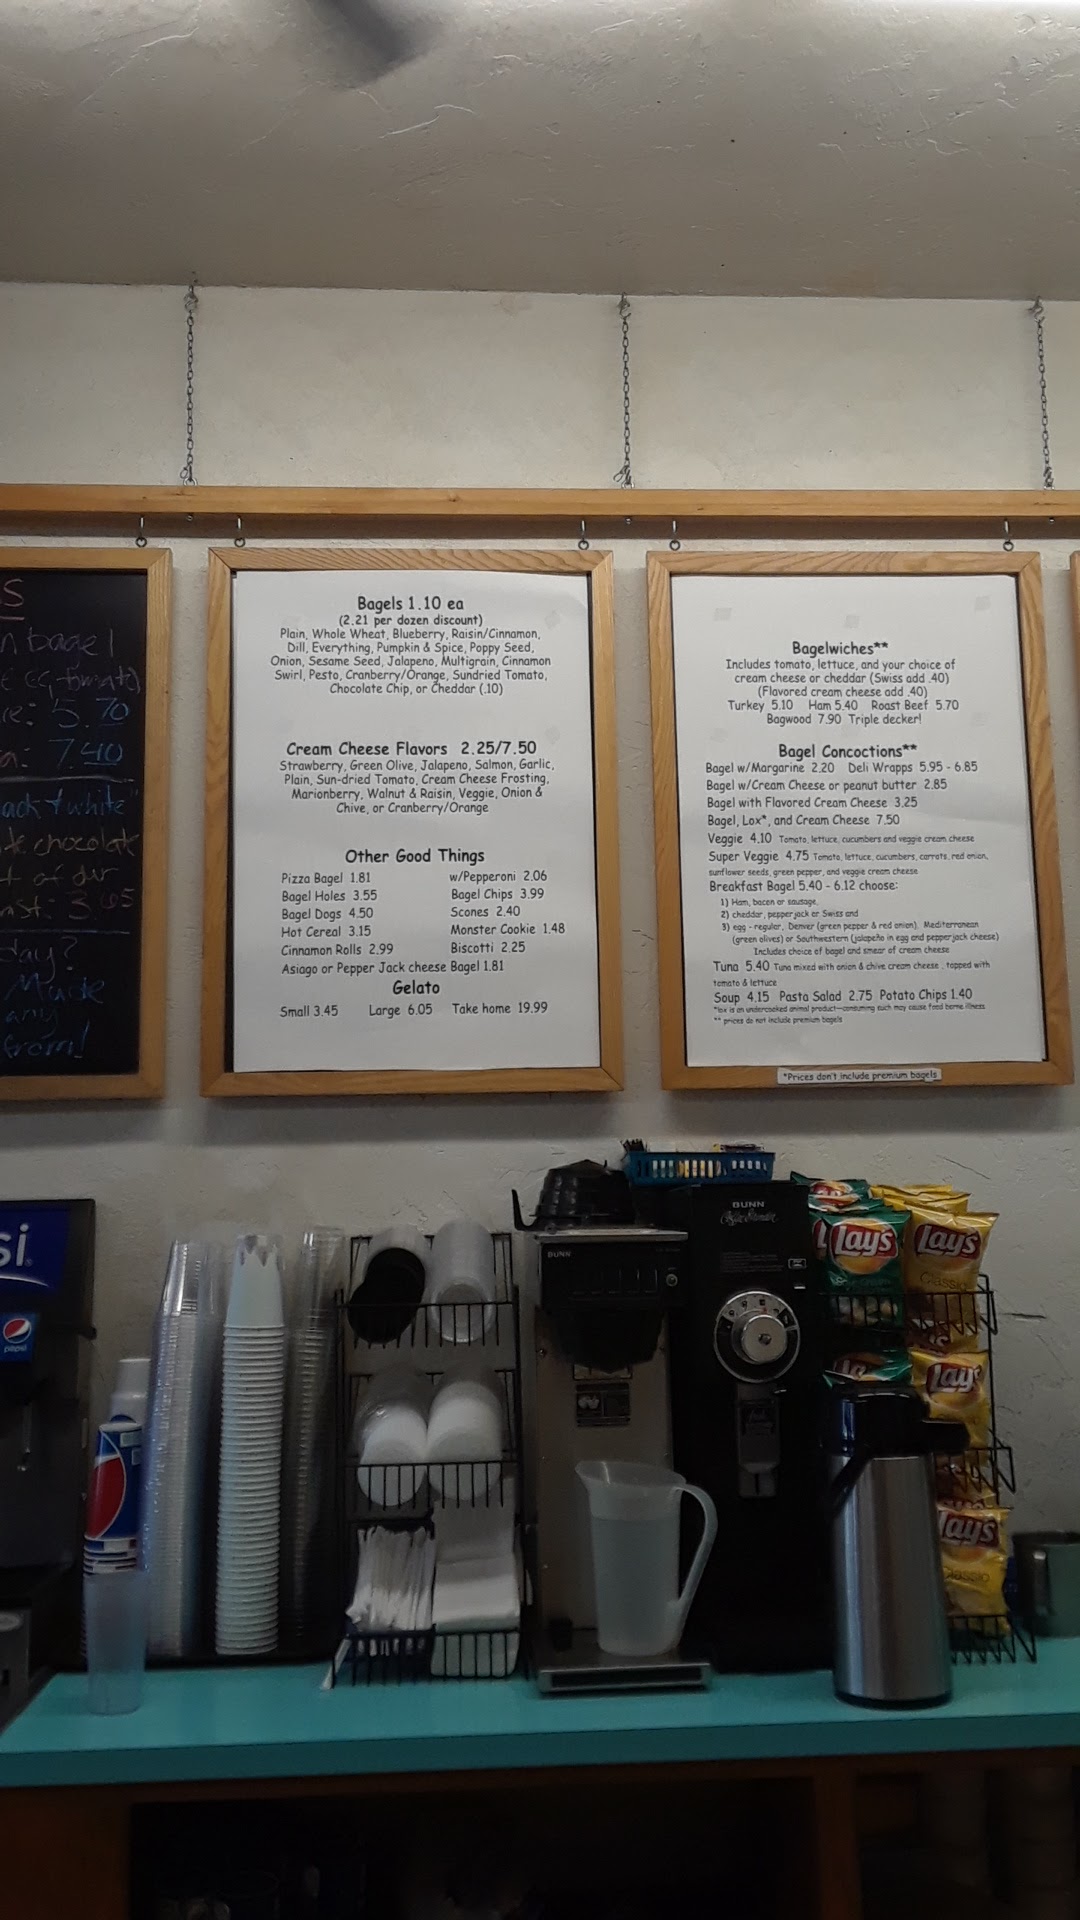 n bagel
5.70
7.40
ack & white"
te chocolate
t of our
day?
Made
any
from!
Bagels 1.10 ea
(2.21 per dozen discount)
Plain, Whole Wheat, Blueberry, Raisin/Cinnamon,
Dill, Everything, Pumpkin & Spice, Poppy Seed,
Onion, Sesame Seed, Jalapeno, Multigrain, Cinnamon
Swirl, Pesto, Cranberry/Orange, Sundried Tomato,
Chocolate Chip, or Cheddar (.10)
Cream Cheese Flavors 2.25/7.50
Strawberry, Green Olive, Jalapeno, Salmon, Garlic,
Plain, Sun-dried Tomato, Cream Cheese Frosting,
Marionberry, Walnut & Raisin, Veggie, Onion &
Chive, or Cranberry/Orange
Other Good Things
Pizza Bagel 1.81 w/Pepperoni 2.06
Bagel Holes 3.55 Bagel Chips 3.99
Bagel Dogs 4.50 Scones 2.40
Hot Cereal 3.15 Monster Cookie 1.48
Cinnamon Rolls 2.99 Biscotti 2.25
Asiago or Pepper Jack cheese Bagel 1.81
Gelato
Small 3.45 Large 6.05 Take home 19.99
Bagelwiches**
Includes tomato, lettuce, and your choice of
cream cheese or cheddar (Swiss add .40)
(Flavored cream cheese add .40)
Turkey 5.10 Ham 5.40 Roast Beef 5.70
Bagwood 7.90 Triple decker!
Bagel Concoctions**
Bagel w/Margarine 2.20 Deli Wrapps 5.95 - 6.85
Bagel w/Cream Cheese or peanut butter 2.85
Bagel with Flavored Cream Cheese 3.25
Bagel, Lox*, and Cream Cheese 7.50
Veggie 4.10 Tomato, lettuce, cucumbers and veggie cream cheese
Super Veggie 4.75 Tomato, lettuce, cucumbers, carrots, red onion,
sunflower seeds, green pepper, and veggie cream cheese
Breakfast Bagel 5.40 - 6.12 choose:
1) Ham, bacon or sausage,
2) cheddar, pepperjack or Swiss and
3) egg - regular, Denver (green pepper & red onion), Mediterranean
(green olives) or Southwestern (jalapeño in egg and pepperjack cheese)
Includes choice of bagel and smear of cream cheese
Tuna 5.40 Tuna mixed with onion & chive cream cheese, topped with
tomato & lettuce
Soup 4.15 Pasta Salad 2.75 Potato Chips 1.40
*lox is an undercooked animal product—consuming such may cause food borne illness
** prices do not include premium bagels
*Prices don't include premium bagels
si
pepsi
BUNN
BUNN
Lay's
Lay's
Classic
Lay's
Lay's
Classic